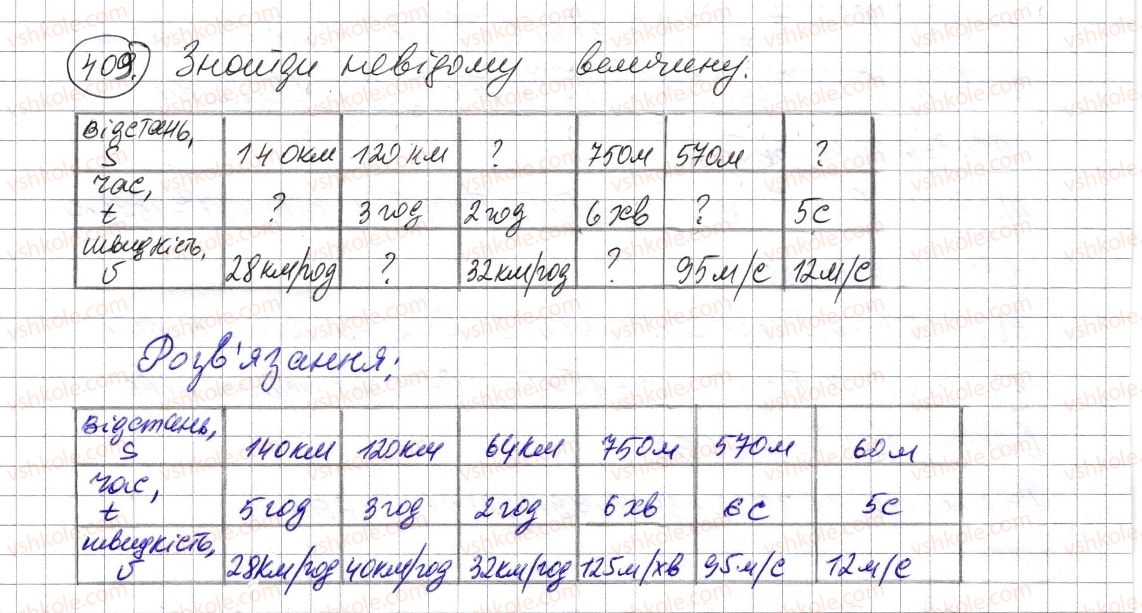 409. Знайди невідому величину.
відстань, S 140км 120км ? 750м 570м ?
час, t ? 3год 2год 6хв ? 5с
швидкість, υ 28км/год ? 32км/год ? 95м/с 12м/с
Розв'язання:
відстань, S 140км 120км 64км 750м 570м 60м
час, t 5год 3год 2год 6хв 6с 5с
швидкість, υ 28км/год 40км/год 32км/год 125м/хв 95м/с 12м/с
vshkole.com